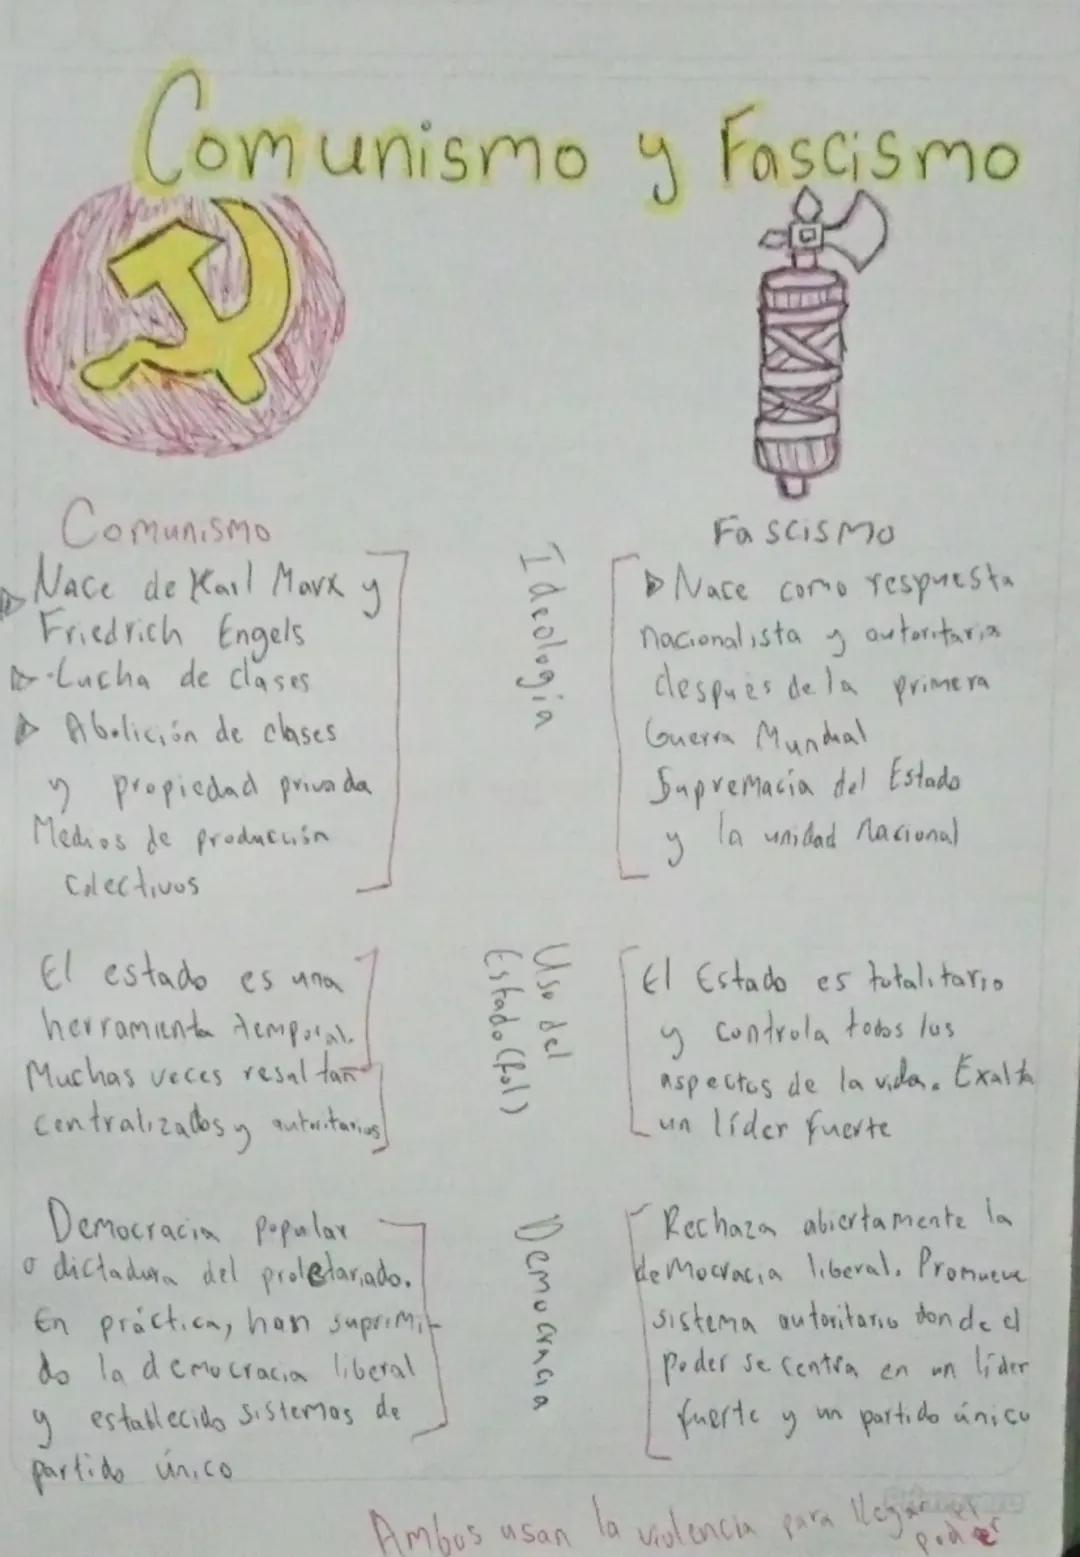 Comunismo y Fascismo
Comunismo
Nace de Karl Marx y
Friedrich Engels
Lucha de clases
Abolición de clases
y propiedad privada
Medios de producción
colectivos
Ideología
Fascismo
Nace como respuesta
nacionalista y autoritaria
después de la primera
Guerra Mundial
Supremacía del Estado
y la unidad nacional
El estado es una
herramienta temporal.
Muchas veces resultan
centralizados y autoritarios
Uso del
Estado (Rol)
El Estado es totalitario
y controla todos los
aspectos de la vida. Exalta
un líder fuerte
Democracia popular
o dictadura del proletariado.
En práctica, han suprimi-
do la democracia liberal
y establecido sistemas de
partido único
Democracia
Rechaza abiertamente la
democracia liberal. Promueve
sistema autoritario donde el
poder se centra en un líder
fuerte y un partido único
Ambos usan la violencia para llegar al
poder